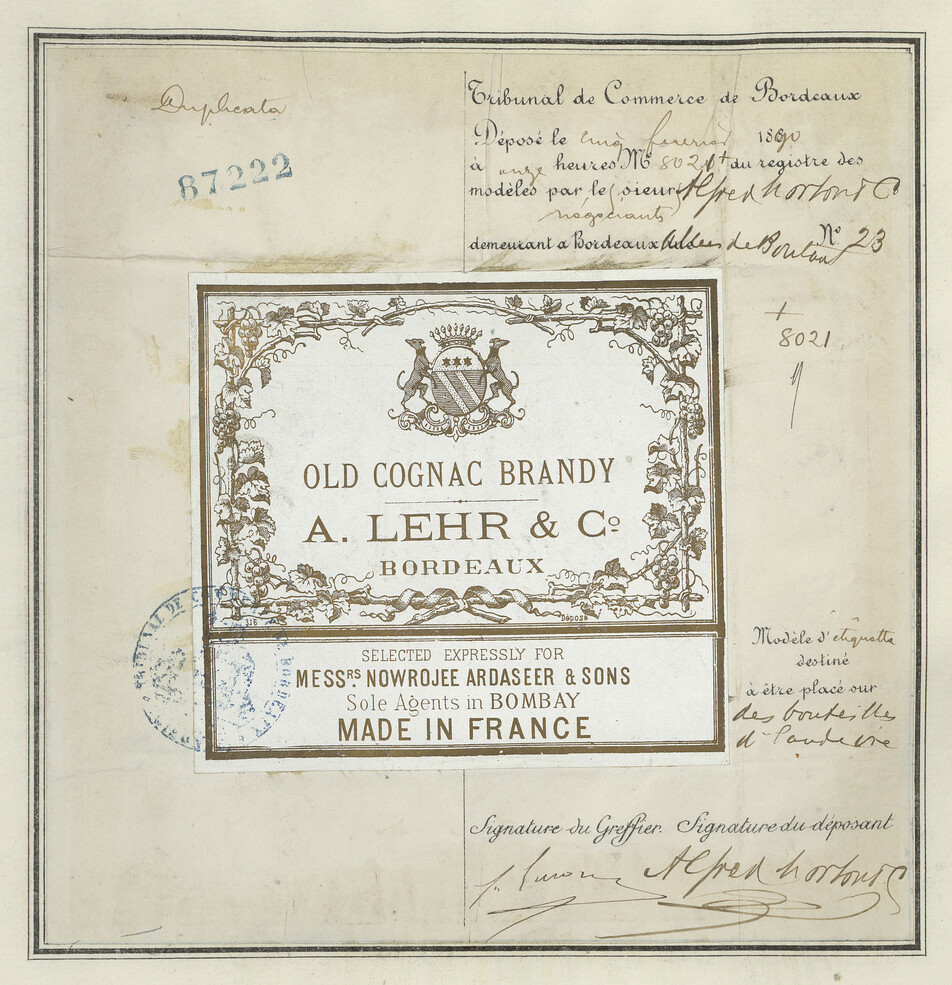 Duplicata
87222
Tribunal de Commerce de Bordeaux
Déposé le cinq fevrier 1890
à onze heures Nº 8021 du registre des
modèles par le sieur Alfred Morton & C
négociants
demeurant a Bordeaux Nº 23
8021
OLD COGNAC BRANDY
A. LEHR & Cº
BORDEAUX
316
Déposé
SELECTED EXPRESSLY FOR
MESSRS NOWROJEE ARDASEER & SONS
Sole Agents in BOMBAY
MADE IN FRANCE
TRIBUNAL DE COMMERCE DE BORDEAUX
Modèle d'étiquette
destiné
à être placé sur
des bouteilles
d'eau de vie
Signature du Greffier. Signature du déposant
Alfred Morton & C